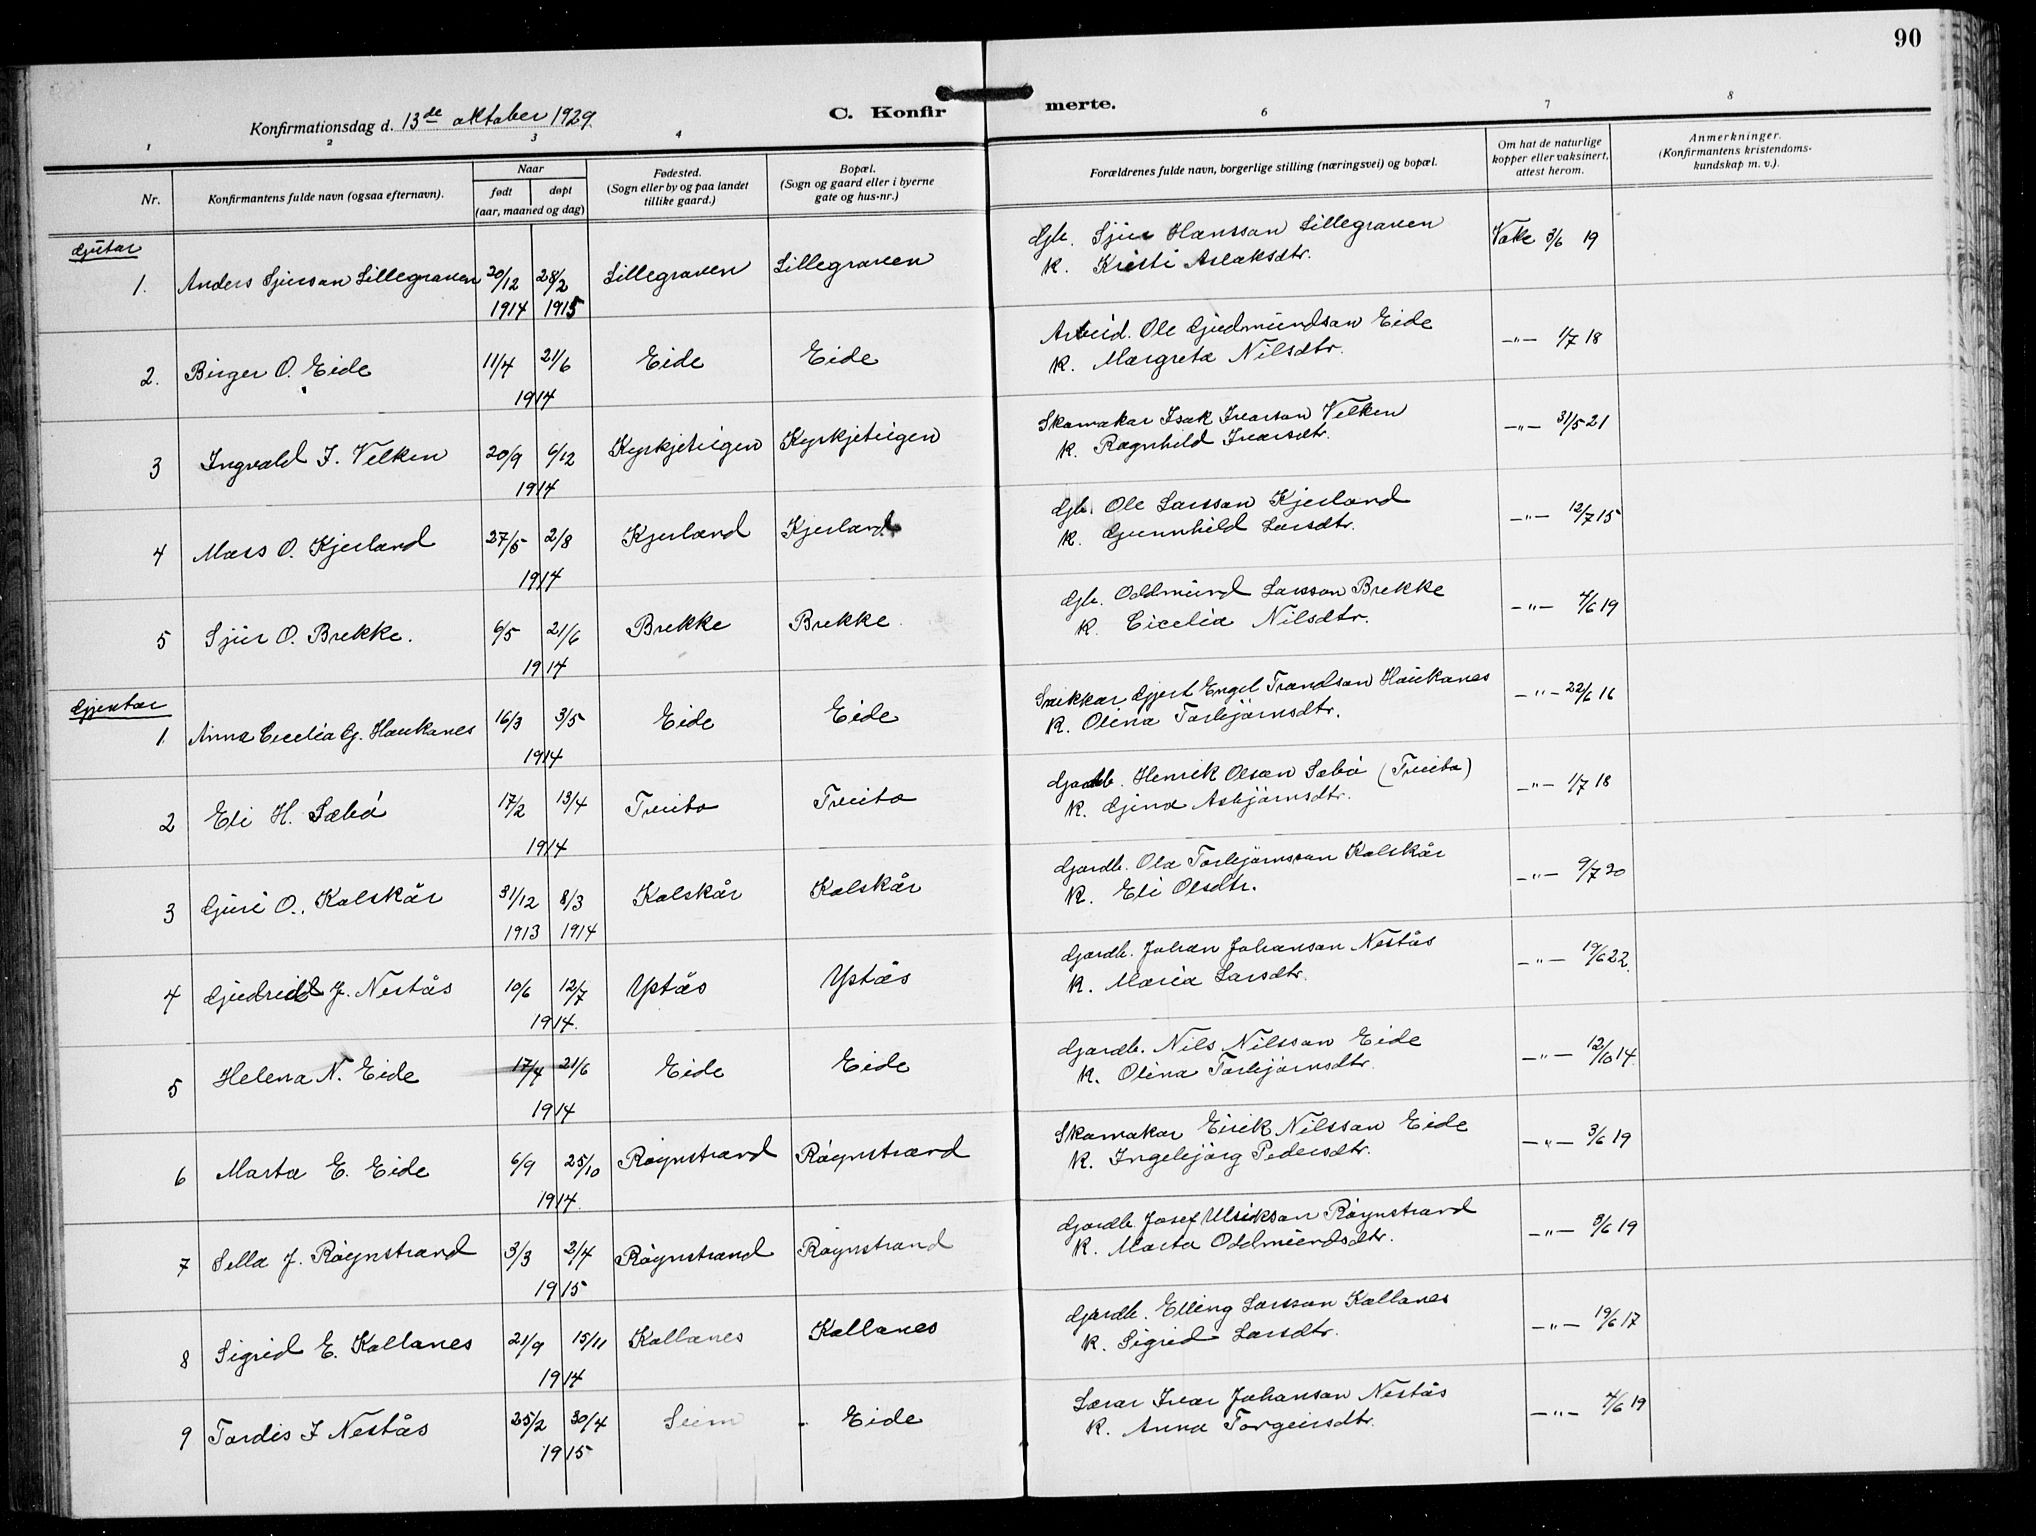 90
Konfirmationsdag d. 13de oktober 1929.
C. Konfirmerte.
1 2 3 4 6 7 8
Nr.
Konfirmantens fulde navn (ogsaa efternavn).
Naar
født døpt
(aar, maaned og dag)
Fødested.
(Sogn eller by og paa landet
tillike gaard.)
Bopæl.
(Sogn og gaard eller i byerne
gate og hus-nr.)
Forældrenes fulde navn, borgerlige stilling (næringsvei) og bopæl.
Om hat de naturlige
kopper eller vaksinert,
attest herom.
Anmerkninger.
(Konfirmantens kristendoms-
kundskap m. v.).
Gutar
1. Anders Sjursson Lillegraven 20/12 28/2 Lillegraven Lillegraven
1914 1915
Gb. Sjur Hansson Lillegraven
K. Kristi Aslaksdtr.
Vakc 3/6 19
2. Birger O. Eide 11/4 21/6 Eide Eide
1914
Arbeid. Ole Gudmundson Eide
K. Margreta Nilsdtr.
—"— 1/7 18
3 Ingvald I. Velken 20/9 6/12 Kyrkjeteigen Kyrkjeteigen
1914
Skomakar Isak Ivarson Velken
K. Ragnhild Ivarsdtr.
—"— 31/5 21
4 Mass O. Kjerland 27/5 2/8 Kjerland Kjerland
1914
Gb. Ole Larsson Kjerland
K. Gunnhild Larsdtr.
—"— 12/7 15
5 Sjur O. Brekke. 6/5 21/6 Brekke Brekke
1914
Gb. Oddmund Larsson Brekke
K. Cicelia Nilsdtr.
—"— 4/6 19
Gjentar
1. Anna Cecelia G. Haukanes 16/3 3/5 Eide Eide
1914
Snikkar Gjert Engel Trondson Haukanes
K. Olina Torbjørnsdtr.
—"— 22/6 16
2 Eli H. Sæbø 17/2 13/4 Tveito Tveito
1914
Gardb. Henrik Olsen Sæbø (Tveito)
K. Gina Asbjørnsdtr.
—"— 1/7 18
3 Guri O. Kolskår 31/12 8/3 Kolskår Kolskår
1913 1914
Gardb. Ola Torbjørnsson Kolskår
K. Eli Olsdtr.
—"— 9/7 20
4 Gudridd J. Nestås 10/6 12/7 Ystås Ystås
1914.
Gardb. Johan Johanson Nestås
K. Maria Larsdtr.
—"— 19/6 22.
5 Helena N. Eide 17/4 21/6 Eide Eide
1914
Gardb. Nils Nilsson Eide
K. Olina Torbjørnsdtr.
—"— 12/10 14
6 Marta E. Eide 6/9 25/10 Røynstrand Røynstrand
1914.
Skomakar Eirik Nilsson Eide
K. Ingebjørg Pedersdtr.
—"— 3/6 19
7 Sella J. Røynstrand 3/3 2/4 Røynstrand Røynstrand
1915
Gardb. Josef Ulrikson Røynstrand
K. Marta Oddmundsdtr.
—"— 3/6 19
8 Sigrid E. Kollanes 21/9 15/11 Kollanes Kollanes
1914
Gardb. Elling Larsson Kollanes
K. Sigrid Larsdtr.
—"— 19/6 17
9 Tordis I Nestås 25/2 30/4 Seim Eide
1915
Lærar Ivar Johanson Nestås
K. Anna Torgeirsdtr.
—"— 4/6 19